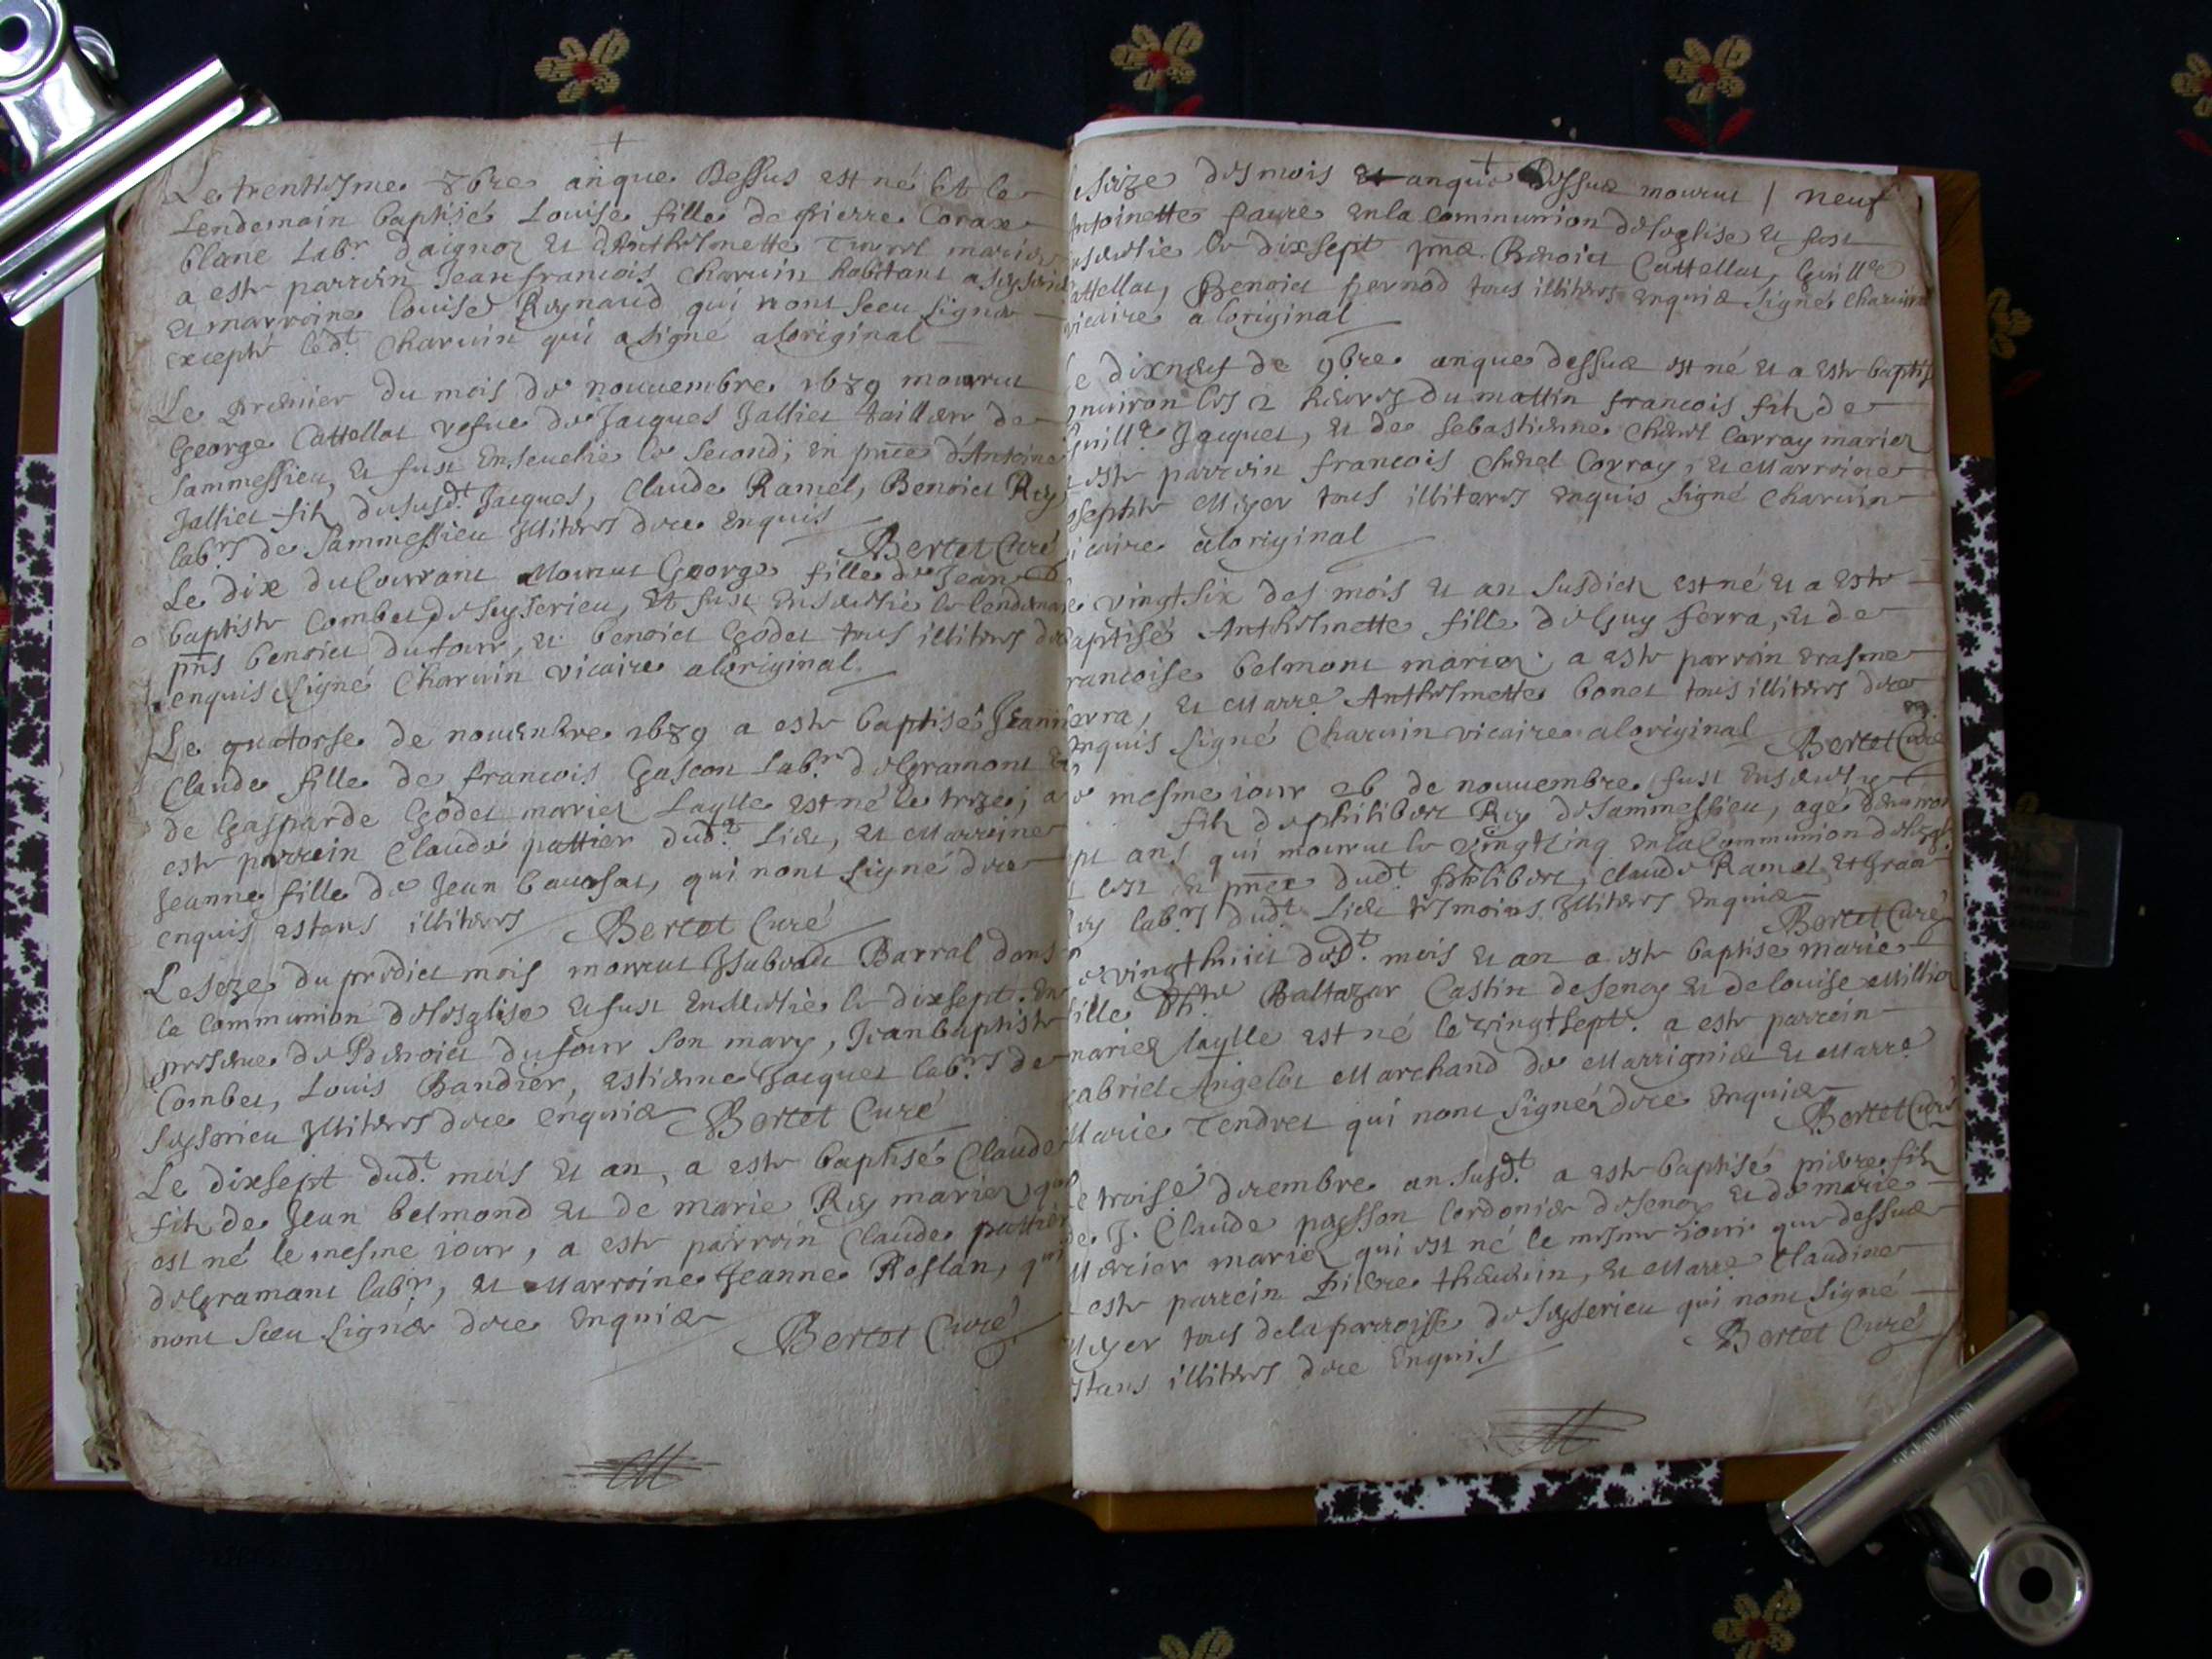 Le trentiesme 8bre anque dessus est né et le
Lendemain baptisé Louise fille de pierre Corax
blanc Labr. daignoz et d'Anthoinette mariez
a esté parrein Jean francois Charvin habitant a
et marroine louise Reynaud qui nont sceu signer
excepté ledt. Charvin qui a signé a loriginal
Le premier du mois de nouuembre 1689 mourut
George Cattellat vefue de Jacques Jallier tailleur de
Sammessieu, et fust enseuelie le second; en pnce d'Antoine
Jallier fils dususdt. Jacques, Claude Ramel, Benoict Rey
labrs de Sammessieu illiteres dece enquis
Bertet Curé
Le dix du Courrant Mourut George fille de Jean
baptiste Combet de seyserieu, et fust enseuelie le lendemain
pns benoict dufour, et benoict Godet tous illiteres de
enquis signé Charvin vicaire a loriginal
Le quatorse de nouembre 1689 a esté baptisé Jeanne
Claude fille de francois Gascon Labr. de Gramont et
de Gasparde Godet mariez Laylle est né le treze; a
esté parrein Claude pattier dudt. Lieu, et Marreine
Jeanne fille de Jean , qui nont signé dece
enquis estans illiteres Bertet Curé
Le seze du predict mois mourut Isabeau Barral dans
la Communion de lesglise et fust enseuelie le dixsept. en
presence de Benoict dufour son mary, Jean baptiste
Combet, Louis Bandier, estienne Jacquet labrs de
seyserieu illiteres dece enquis Bertet Curé
Le dixsept dudt. mois et an, a esté baptisé Claude
fils de Jean belmond et de marie Rey mariez, qui
est né le mesme iour, a esté parroin Claude pattier
de Gramant labr, et Marroine Jeanne Roslan, qui
nont sceu signer dece enquis
Bertet Curé
seize des mois et anque dessus mourut / neuf
Antoinette faure en la communion de leglise et fust
enseuelie le dixsept pns. Benoict Cattellat, Guille
Cattellat, Benoict pernod tous illiteres enquis signé Charvin
vicaire a loriginal
Le dixneuf de 9bre anque dessus est né et a esté baptisé
enuiron les 2 heures du mattin francois fils de
Guille Jacquet, et de sebastienne Corray mariez
a esté parroin francois Corray, et Marroine
Josephte Meyer tous illiteres enquis signé Charvin
vicaire a loriginal
Le vingt six des mois et an susdict est né et a esté
baptisé Anthoinette fille de Guy ferra, et de
francoise belmont mariez, a esté parroin erasme
ferra, et Marre Anthoinette bonet tous illiteres dece
enquis signé Charvin vicaire a loriginal
Bertet Curé
Le mesme iour 26 de nouuembre fust enseuely
fils de philibert Rey de Sammessieu, agé denuiron
sept ans qui mourut le vingt cinq en la Communion de
et en pnce dudt. philibert, Claude Ramel, et
Rey labrs dudt Lieu tesmoins illiteres enquis
Bertet Curé
Le vingt huict dudt. mois et an a esté baptisé marie
fille Baltazar Castin de senoy et de louise Millioz
mariez laylle est né le vingt sept. a esté parrein
gabriel Angelot Marchand de Marrignieu et Marre
Marie Tendret qui nont signé dece enquis
Bertet Curé
Le troise decembre an susdt. a esté baptisé pierre fils
de J. Claude peysson Cordonier de senoy et de marie
Mercier mariez qui est né le mesme iour que dessus
a esté parrein pierre , et Marre Claudine
Meyer tous de la parroisse de seyserieu qui nont signé
estans illiteres dece enquis
Bertet Curé